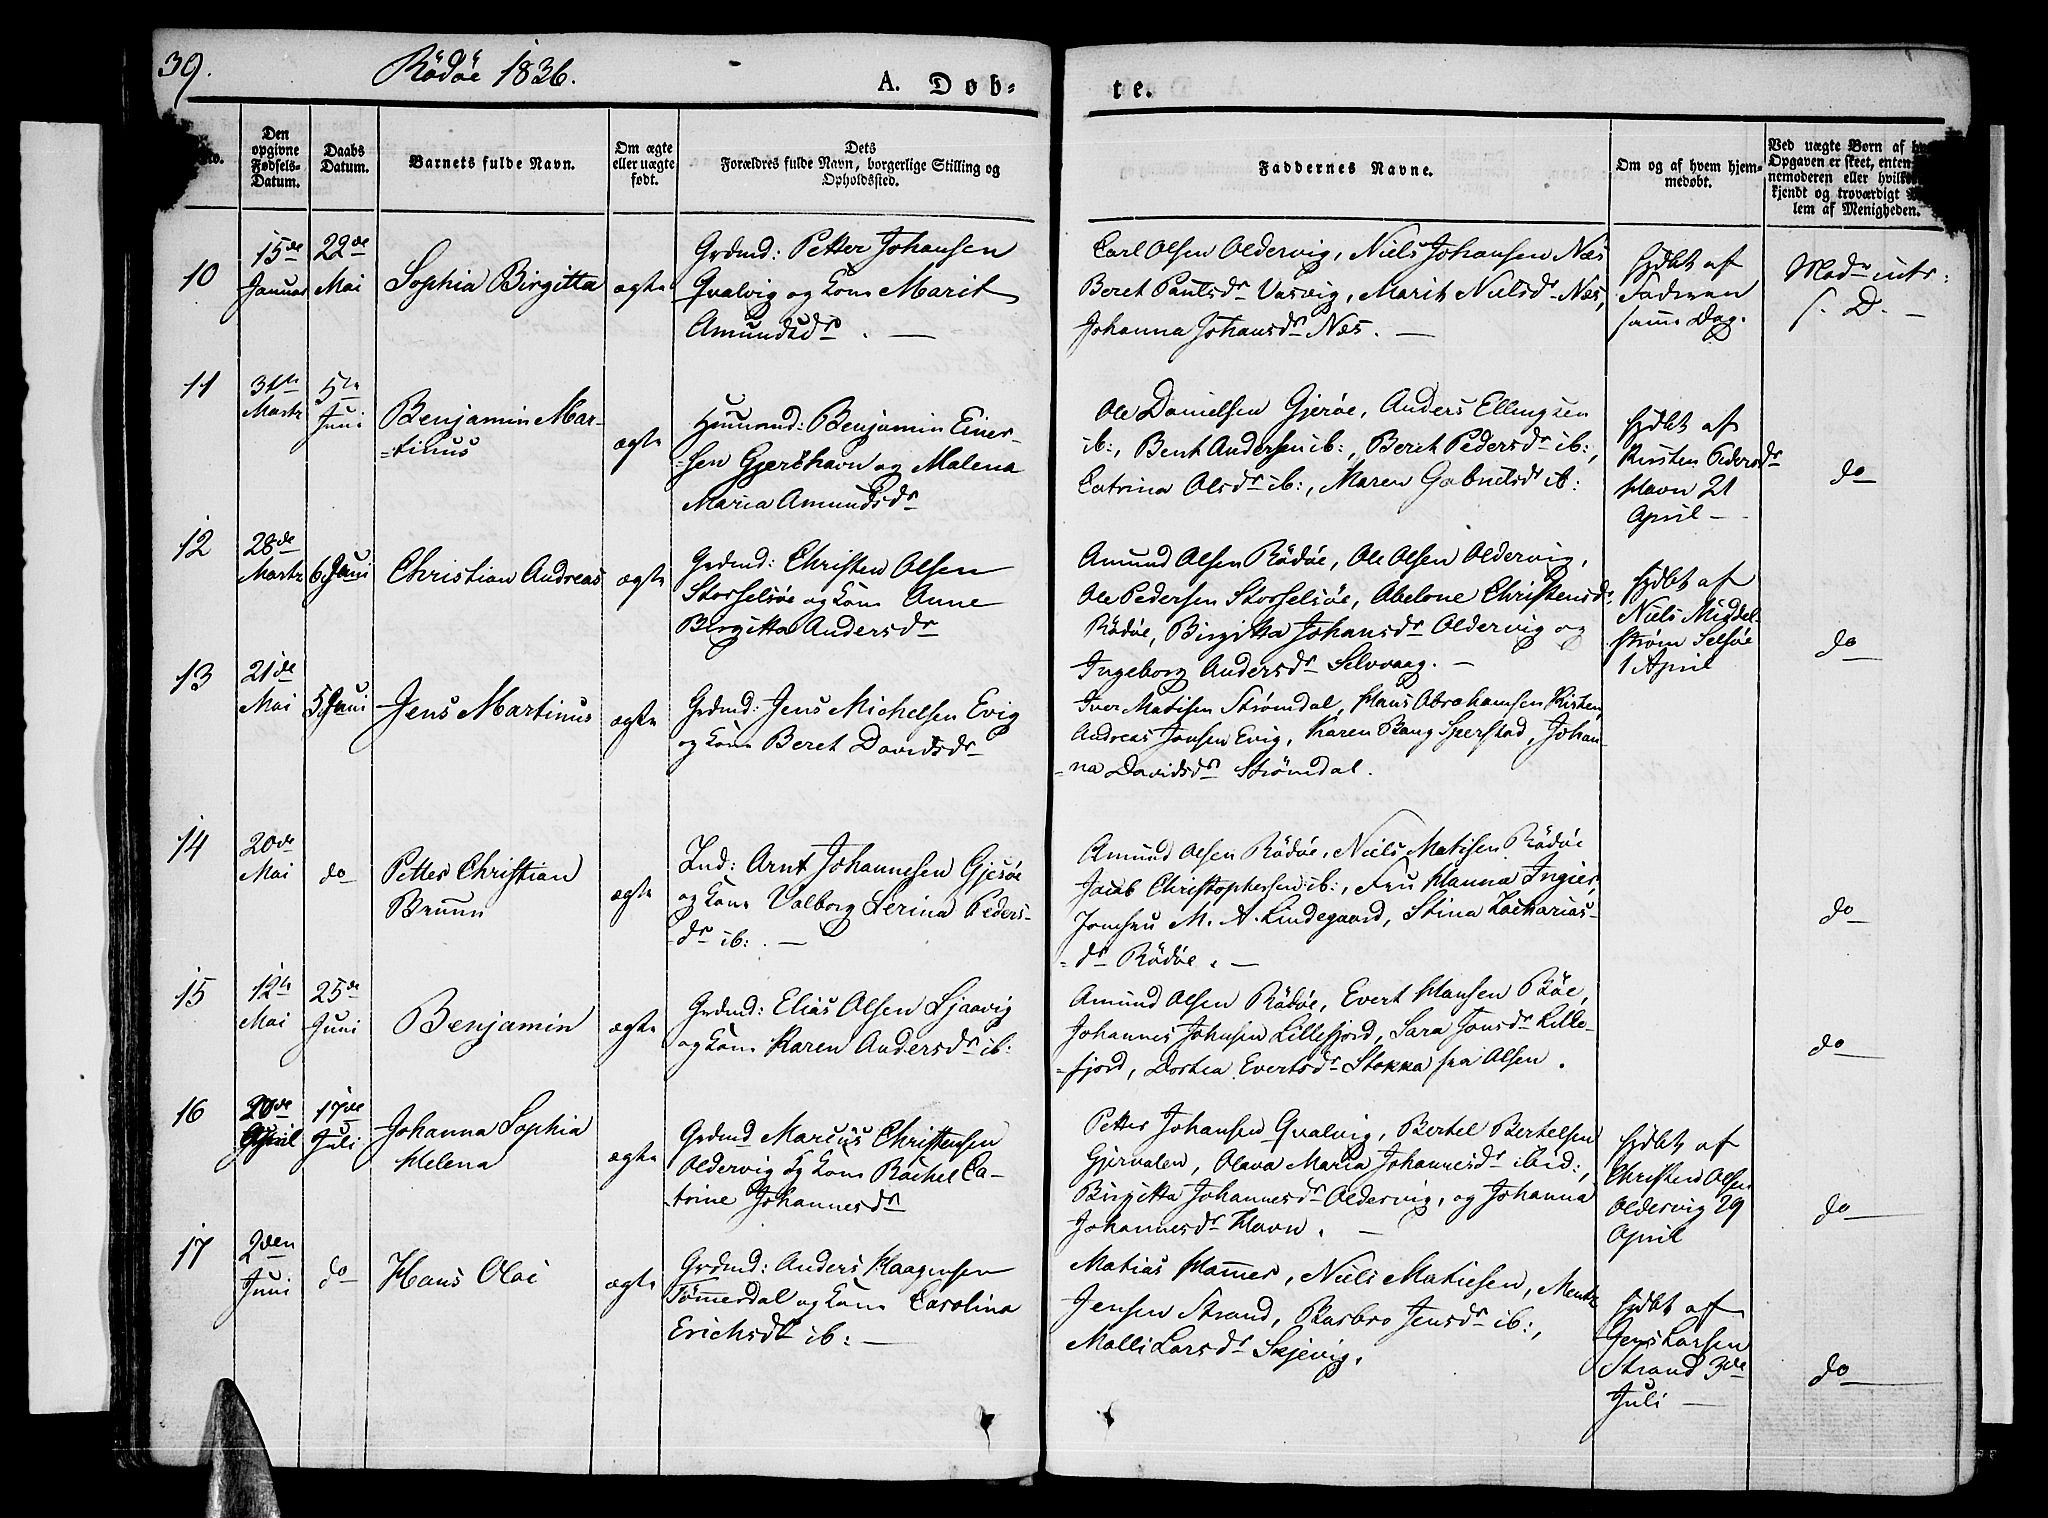 39.
Rödöe 1836.
A. Døb-
te.
No.
Den
opgivne
Fødsels-
Datum.
Daabs
Datum.
Barnets fulde Navn.
Om ægte
eller uægte
født.
Dets
Forældres fulde Navn, borgerlige Stilling og
Opholdssted.
Faddernes Navne.
Om og af hvem hjem-
medøbt.
Ved uægte Børn af
Opgaven er skeet, enten
nemoderen eller
kjendt og troværdigt
lem af Menigheden.
10
15de
Januar
22de
Mai
Sophia Birgitta
ægte
Grdmd: Petter Johansen
Qvalvig og Kone Marit
Amundsdr. —
Carl Olsen Oldervig, Niels Johansen Næs
Beret Paulsdr Vasvig, Marit Nielsdr Næs,
Johanna Johansdr Næs. —
hjdbt af
Faderen
samme Dag.
Modr intr:
s. D. —
11
31te
Marts
5te
Juni
Benjamin Mar-
-tinus
ægte
Huusmd: Benjamin Einer-
-sen Gjeröhavn og Malena
Maria Amundsdr
Ole Danielsen Gjerøe, Anders Ellingsen
ib:, Bent Andersen ib:, Beret Pedersdr ib:,
Catrina Olsdr ib:, Maren Gabrielsdr ib:
hjdbt af
Kirsten Pedersdr
Havn 21
April —
do
12
28de
Marts
6 Juni
Christian Andreas
ægte
Grdmd: Christen Olsen
Storselsöe og Kone Anne
Birgitta Andersdr
Amund Olsen Rödöe, Ole Olsen Oldervig,
Ole Pedersen Storselsöe, Abelone Christensdr
Rödöe, Birgitta Johansdr Oldervig og
Ingeborg Andersdr Selvvaag. —
hjdbt af
Niels Middel-
strøm Selsöe
1 April
do
13
21de
Mai
5 Juni
Jens Martinus
ægte
Grdmd: Jens Michelsen Evig
og Kone Beret Davidsdr
Iver Matisen Strømdal, Hans Abrahamsen Kirsten,
Andreas Jonsen Evig, Karen Bang Sperstad, Johan-
-na Davidsdr Strömdal.
14
20de
Mai
do
Petter Christian
Bruun
ægte
Ind: Arnt Johannesen Gjesöe
og Kone Valborg Serina Peders-
-dr ib:. —
Amund Olsen Rödöe, Niels Matisen Rödöe
Jacob Christophersen ib:, Fru Hanna Ingier,
Jomfru M. A. Lindegaard, Stina Zacharias-
-dr Rödöe. —
do
15
12te
Mai
25de
Juni
Benjamin
ægte
Grdmd: Elias Olsen Ljaavig
og Kone Karen Andersdr ib:
Amund Olsen Rödöe, Evert Hansen Böe,
Johannes Johnsen Lillefjord, Sara Jonsdr Lille-
-fjord, Dortea Evertsdr Stokka fra Alsen.
do
16
20de
April
17de
Juli
Johanna Sophia
Helena
ægte
Grdmd Marcus Christensen
Oldervig og Kone Rachel Ca-
-trine Johannesdr
Petter Johansen Qvalvig, Bertel Bertelsen
Gjervalen, Olava Maria Johannesdr ibid:,
Birgitta Johannesdr Oldervig, og Johanna
Johannesdr Havn. —
hjdbt af
Christen Olsen
Oldervig 29
April
do
17
2den
Juni
do
Hans Olai
ægte
Grdmd: Anders Haagensen
Tömmerdal og Kone Carolina
Erichsdr ib: —
Matias Hammer, Niels Matiesen, Mentz
Jensen Strand, Barbro Jensdr ib:,
Malli Larsdr Skjevig.
hjdbt af
Jens Larsen
Strand 3de
Juli —
do